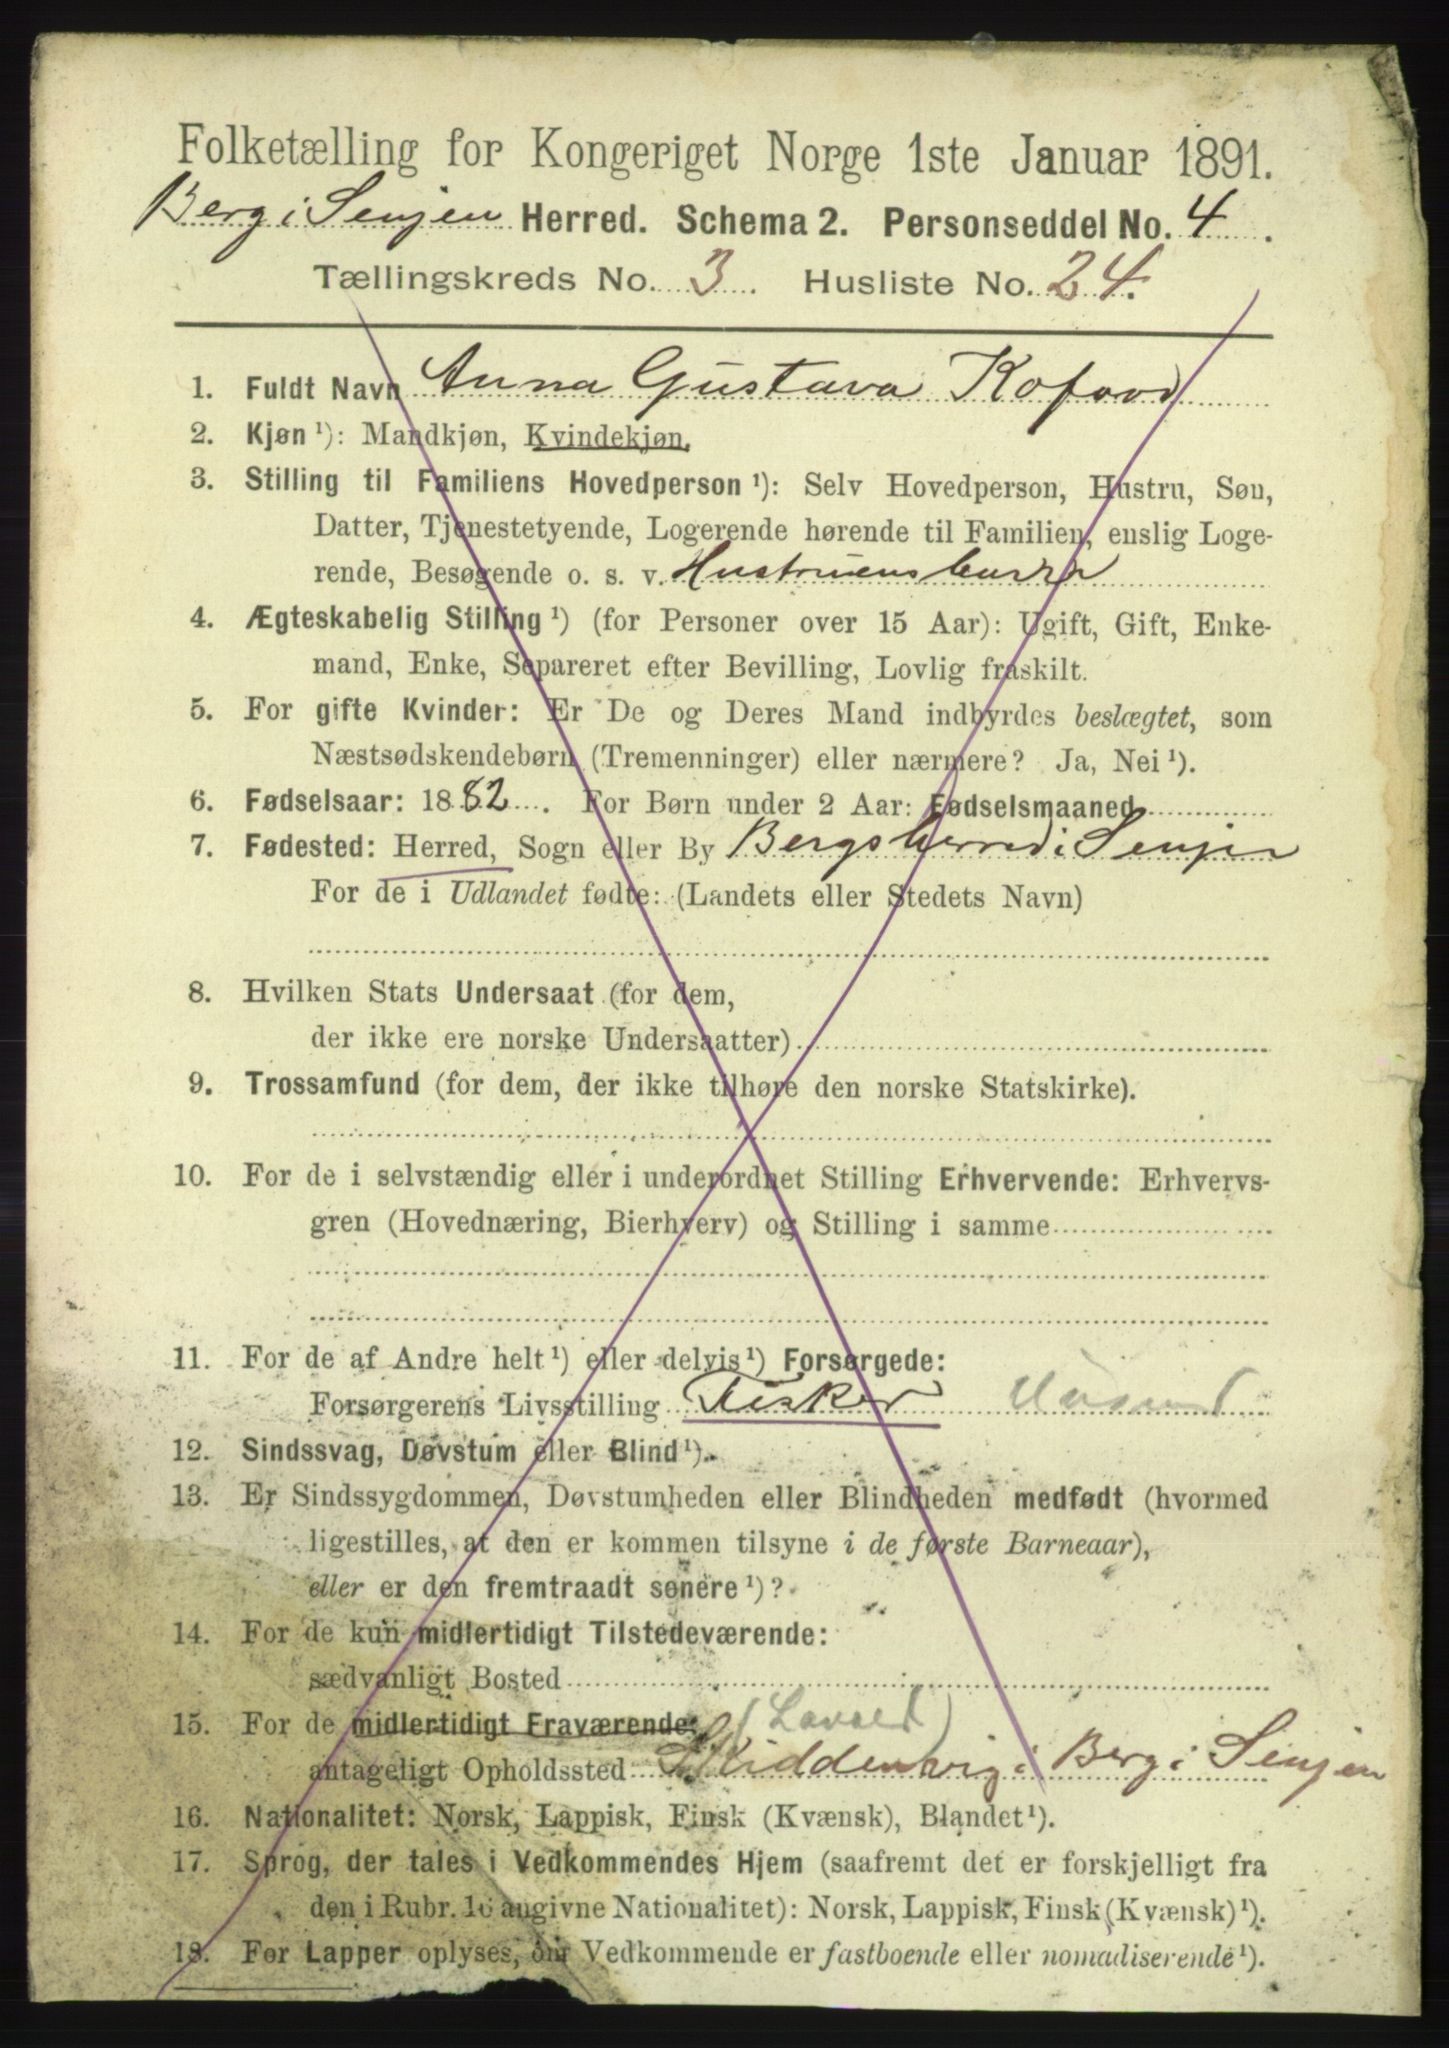 Folketælling for Kongeriget Norge 1ste Januar 1891.
Berg i Senjen Herred. Schema 2. Personseddel No. 4.
Tællingskreds No. 3. Husliste No. 24.
1. Fuldt Navn Anna Gustava Kofoed
2. Kjøn¹): Mandkjøn, Kvindekjøn.
3. Stilling til Familiens Hovedperson¹): Selv Hovedperson, Hustru, Søn,
Datter, Tjenestetyende, Logerende hørende til Familien, enslig Loge-
rende, Besøgende o. s. v. Hustruens
4. Ægteskabelig Stilling¹) (for Personer over 15 Aar): Ugift, Gift, Enke-
mand, Enke, Separeret efter Bevilling, Lovlig fraskilt.
5. For gifte Kvinder: Er De og Deres Mand indbyrdes beslægtet, som
Næstsødskendebørn (Tremenninger) eller nærmere? Ja, Nei¹).
6. Fødselsaar: 1882. For Børn under 2 Aar: Fødselsmaaned
7. Fødested: Herred, Sogn eller By Bergsherred i Senjen
For de i Udlandet fødte: (Landets eller Stedets Navn)
8. Hvilken Stats Undersaat (for dem,
der ikke ere norske Undersaatter)
9. Trossamfund (for dem, der ikke tilhøre den norske Statskirke).
10. For de i selvstændig eller i underordnet Stilling Erhvervende: Erhvervs-
gren (Hovednæring, Bierhverv) og Stilling i samme
11. For de af Andre helt¹) eller delvis¹) Forsørgede:
Forsørgerens Livsstilling Fisker
12. Sindssvag, Døvstum eller Blind¹).
13. Er Sindssygdommen, Døvstumheden eller Blindheden medfødt (hvormed
ligestilles, at den er kommen tilsyne i de første Barneaar),
eller er den fremtraadt senere¹)?
14. For de kun midlertidigt Tilstedeværende:
sædvanligt Bosted
15. For de midlertidigt Fraværende:
antageligt Opholdssted i Berg i Senjen
16. Nationalitet: Norsk, Lappisk, Finsk (Kvænsk), Blandet¹).
17. Sprog, der tales i Vedkommendes Hjem (saafremt det er forskjelligt fra
den i Rubr. 16 angivne Nationalitet): Norsk, Lappisk, Finsk (Kvænsk)¹).
18. For Lapper oplyses, om Vedkommende er fastboende eller nomadiserende¹).